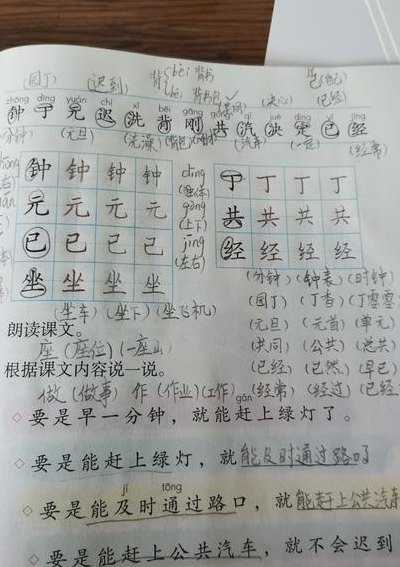 (园丁) (迟到) 背 bēi 背书包 (自己)
(决心) (已经)
zhōng dīng yuán chí xǐ bèi gāng gòng qì jué dìng yǐ jīng
钟 丁 元 迟 洗 背 刚 共 汽 决 定 已 经
(分钟) (元旦) (洗澡) (背包) (汽车) (一定) (经常)
钟 钟 钟 钟 丁 丁 丁 丁
元 元 元 元 共 共 共 共
已 已 已 已 经 经 经 经
坐 坐 坐 坐
(上下)
(左右)
(坐车) (坐下) (坐飞机)
(分钟) (钟表) (时钟)
(园丁) (丁香) (丁零零)
(元旦) (元首) (单元)
(共同) (公共) (总共)
(已经) (已然) (早已)
(经常) (经过) (已经
朗读课文。
座 (座位) (一座山)
根据课文内容说一说。
做 (做事) 作 (作业) (工作)
gǎn
◇ 要是早一分钟，就能赶上绿灯了。
◇ 要是能赶上绿灯，就能及时通过路口了
jí tōng
◇ 要是能及时通过路口，就能赶上公共汽车
◇ 要是能赶上公共汽车，就不会迟到